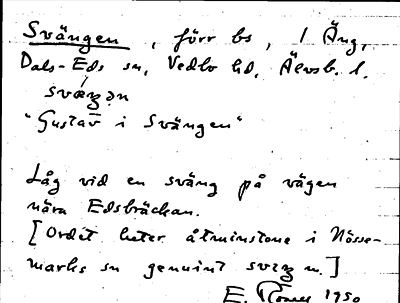 Svängen, förr bs, 1 Äng,
Dals-Eds sn, Vedbo hd, Älvsb. l.
"Gustav i Svängen"
Låg vid en sväng på vägen
nära Edsbräckan.
[Ordet heter åtminstone i Nösse-
marks sn genuint m.]
E. 1950